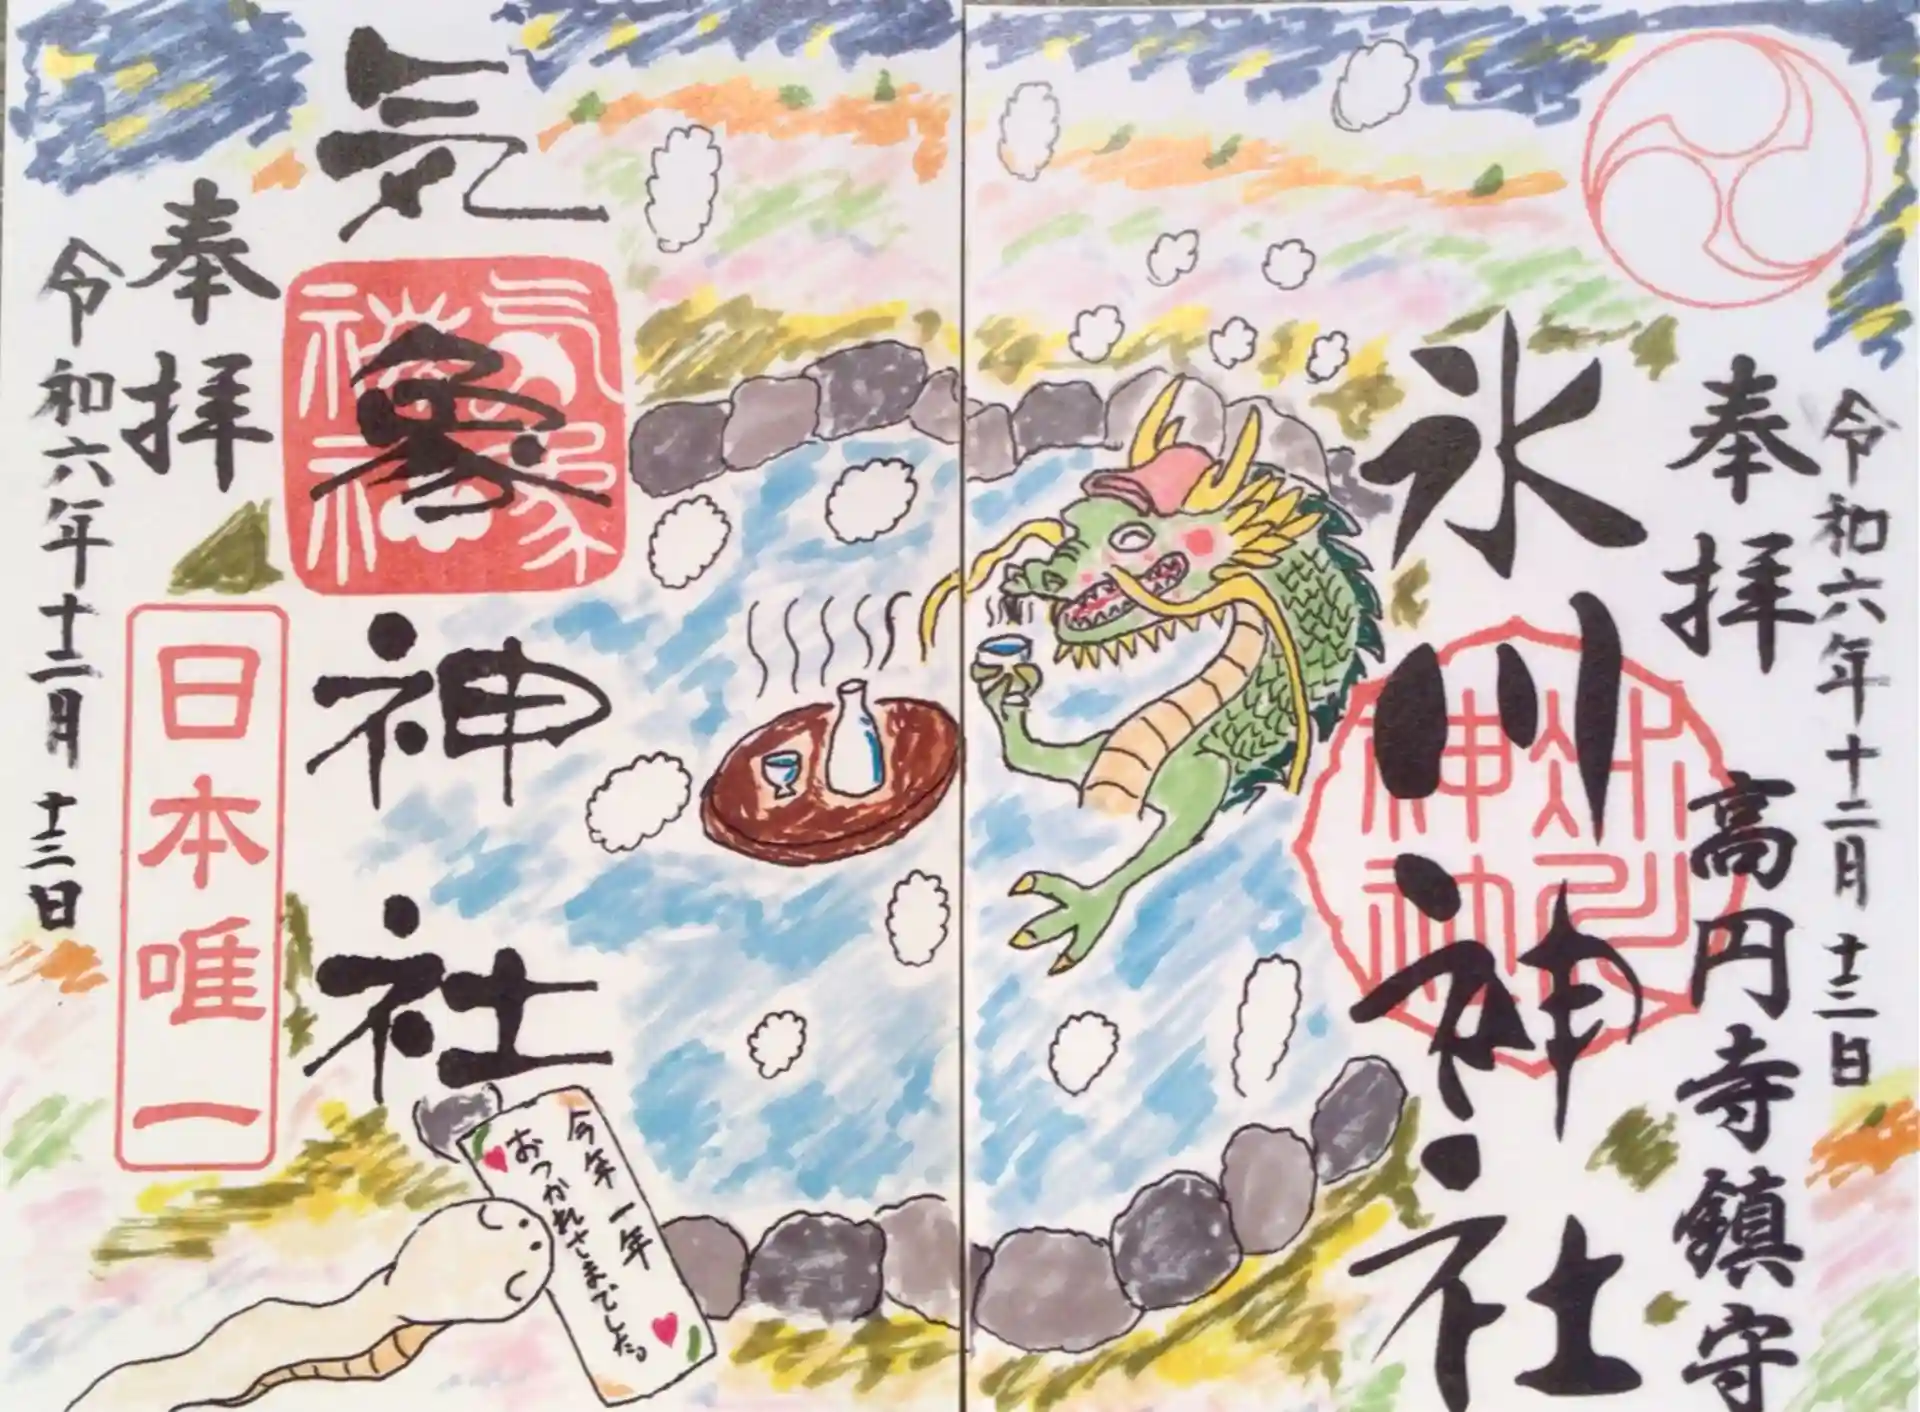 令和六年十二月十二日
奉拝
高円寺鎮守
氷川神社
氷川神社
気象神社
気象神社
奉拝
令和六年十二月十二日
日本唯一
今年一年
おつかれさまでした。